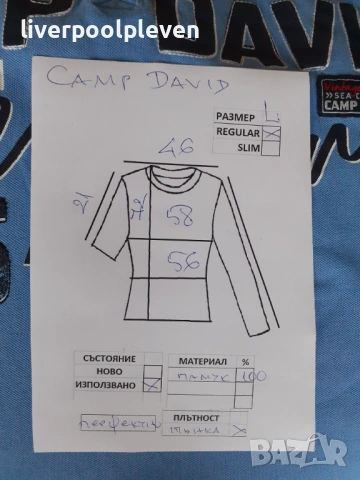 liverpoolpleven
DAVID
CAMP DAVID
РАЗМЕР L
REGULAR X
SLIM
SEA
CAMP
46
58
56
СЪСТОЯНИЕ
НОВО
ИЗПОЛЗВАНО X
МАТЕРИАЛ %
ПАМУК 100
перфектно
ПЛЪТНОСТ
тънка X
BAZAR